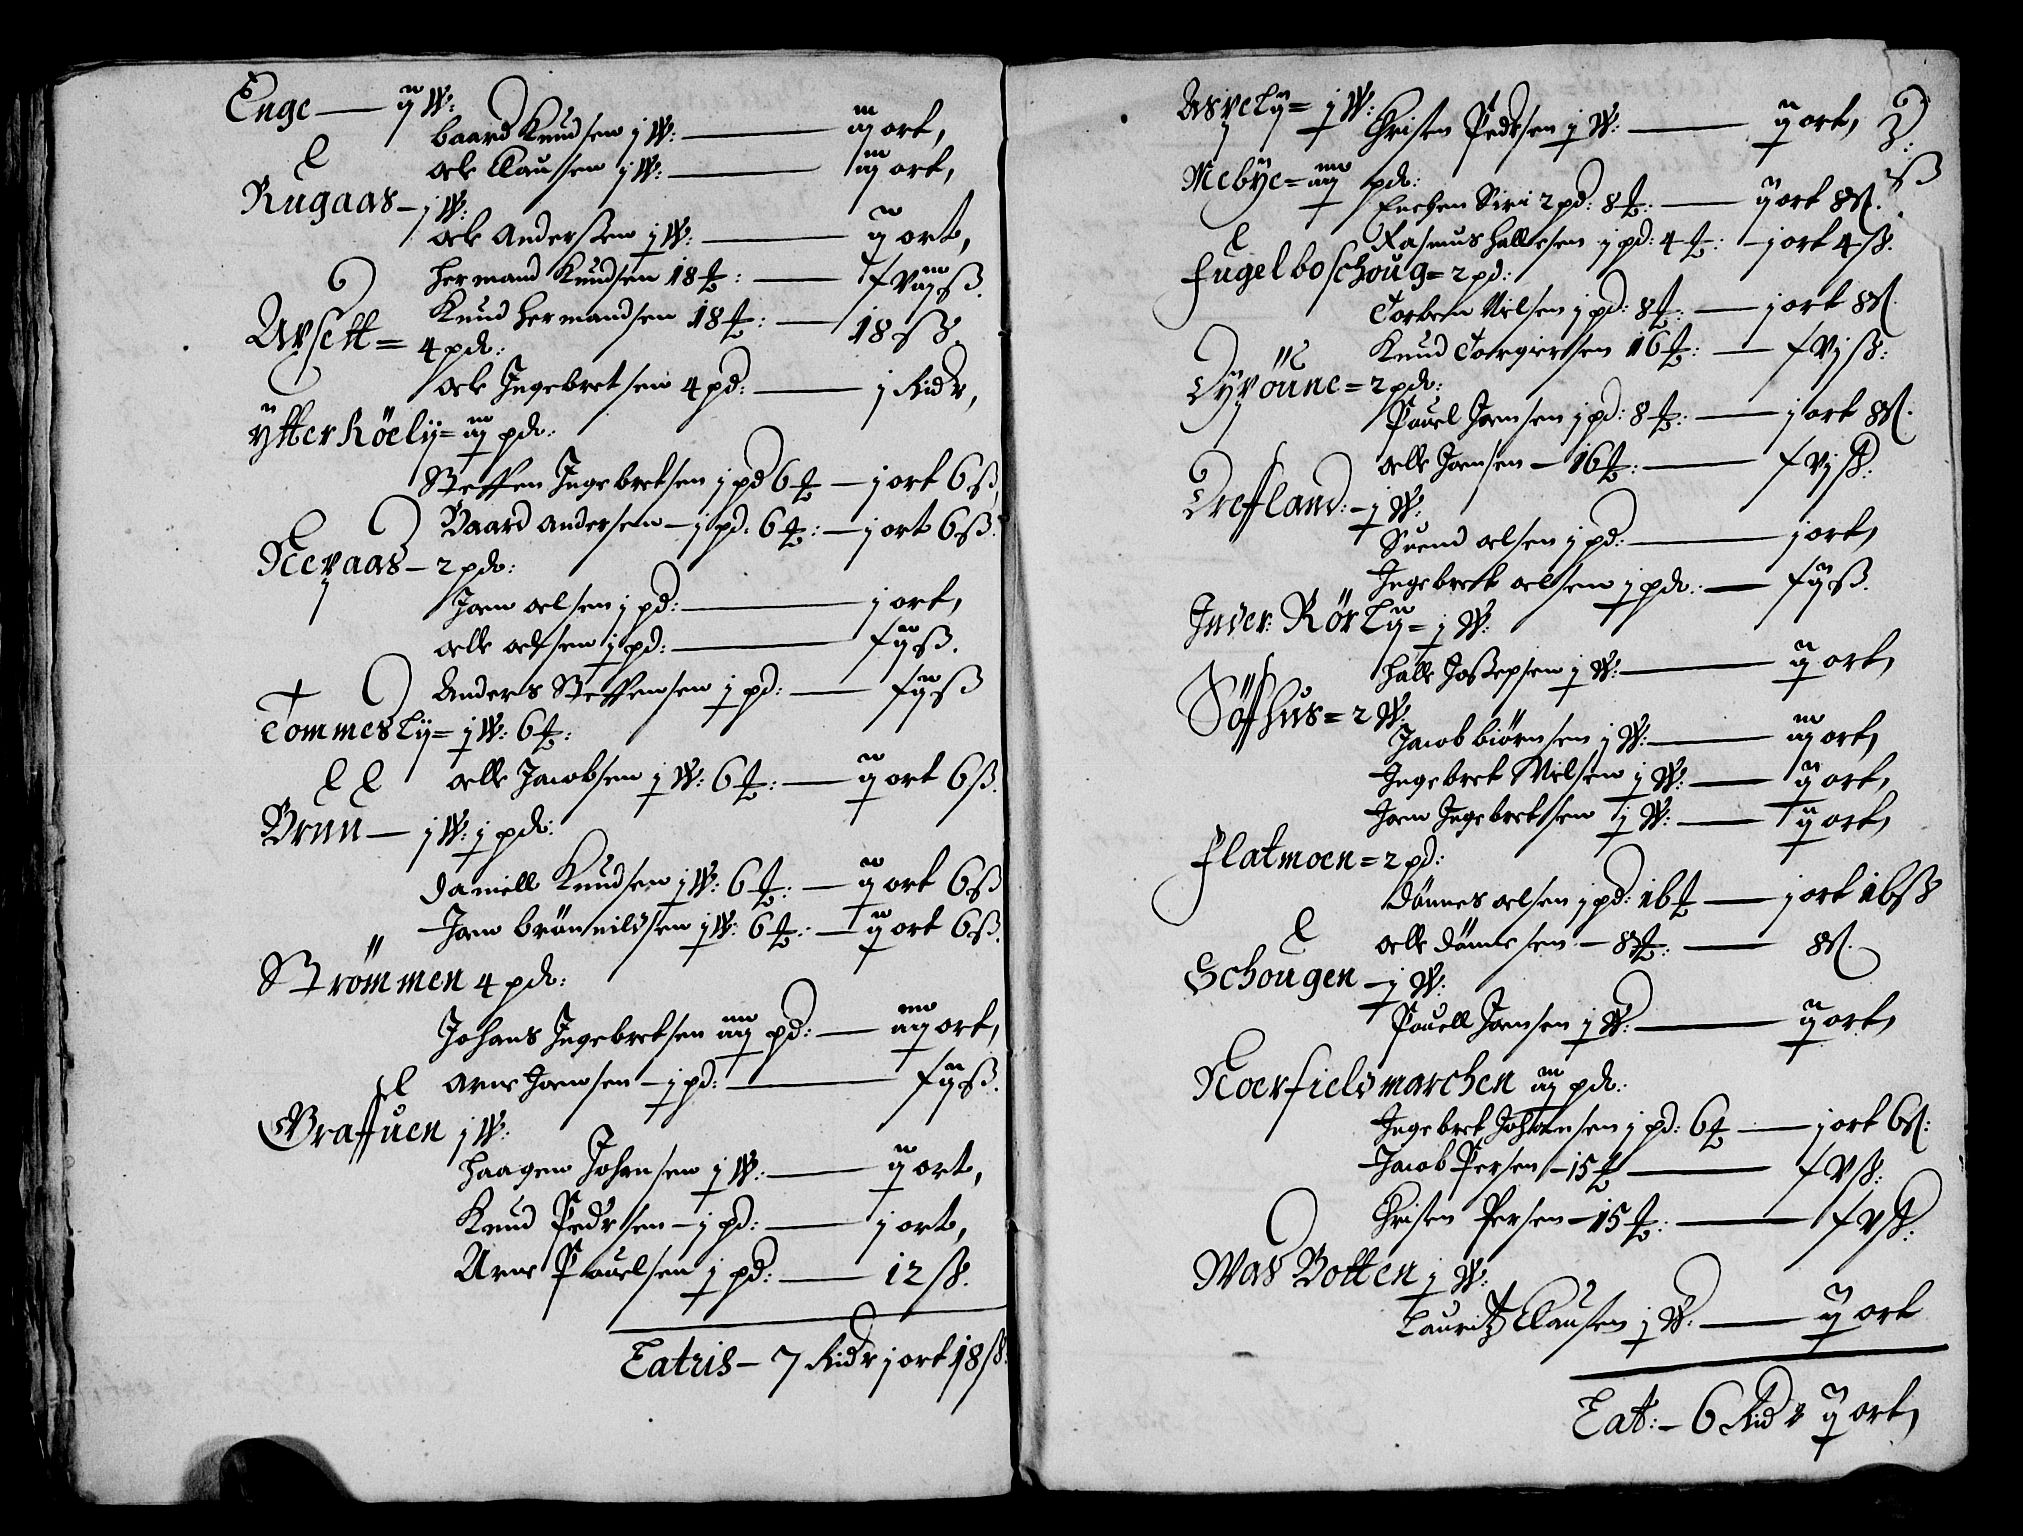 Enge — ij W:
baard Knudsen j W: — iij ort,
ole Clausen j W: — iij ort,
Rugaas – j W:
ole Anderssen j W: — ij ort,
hermand Knudsen 18 ℔: — f viij ß.
Knud hermandsen 18 ℔: — 18 ß.
Urset = 4 pdr:
ole Ingebretsen 4 pd: — j Ridr,
ÿtter Röelÿ = iij pdr:
Steffen Ingebretsen j pd 6 ℔ — j ort 6 ß,
Baard andersen – j pd. 6 ℔: — j ort 6 ß.
Nevaas – 2 pdr:
Joen oelsen j pd: — j ort,
oelle oelsen j pd: — f ij ß.
Anders Steffensen j pd: — f ij ß
Tommeslÿ = j W: 6 ℔:
oelle Jacobsen j W: 6 ℔: — ij ort 6 ß.
Bruu — j W: j pdr:
Daniell Knudsen j W: 6 ℔: — ij ort 6 ß
Joen brönnildsen j W: 6 ℔: — ij ort 6 ß.
Strömmen 4 pdr:
Johans Ingebretsen iiij pd: — iiij ort,
Arne Joensen – j pd: — f ij ß.
Graffuen j W:
haagen Johansen j W: — ij ort,
Knud Pedersen – j pd: — j ort,
Arne Pouelsen j pd: — 12 ß.
Latris – 7 Ridr j ort 18 ß.
Usvelÿ = j W:
Christen Pedersen j W: — ij ort,
Mebÿe = iiij pdr:
Enchen Siri 2 pd: 8 ℔: — ij ort 8 ß.
Rasmus hallesen j pd: 4 ℔: – j ort 4 ß.
Fugelboschoug = 2 pd:
Torben Nilsen j pd: 8 ℔: — j ort 8 ß.
Knud Torgiersen 16 ℔: — f vj ß:
Dÿröune = 2 pdr:
Pouel Joensen j pd: 8 ℔: — j ort 8 ß.
oelle Joensen – 16 ℔: — f vj ß.
Drefland: – j W:
Suend oelsen j pd: — j ort,
Ingebrett oelsen j pdr: — f ij ß.
Inder: Rörlÿ = j W:
halle Jostepsen j W: — ij ort,
Söfhus = 2 W:
Jacob biörnsen j W: — iij ort,
Ingebret Nilsen j W: — ij ort,
Joen Ingebretsen j W: — ij ort,
Flatmoen = 2 pd:
Dönnes oelsen j pd: 16 ℔ — j ort 16 ß
oelle Dönnesen – 8 ℔: — 8 ß.
Schougen – j W:
Pouell Joensen j W: — ij ort,
Noerfieldmarchen iij pdr:
Ingebret Johansen j pd: 6 ℔ — j ort 6 ß:
Jacob Persen – 15 ℔ — f v ß:
Christen Persen – 15 ℔: — f v ß:
Was Botten j W:
Lauritz Clausen j W: — ij ort
Lat: – 6 Ridr ij ort,